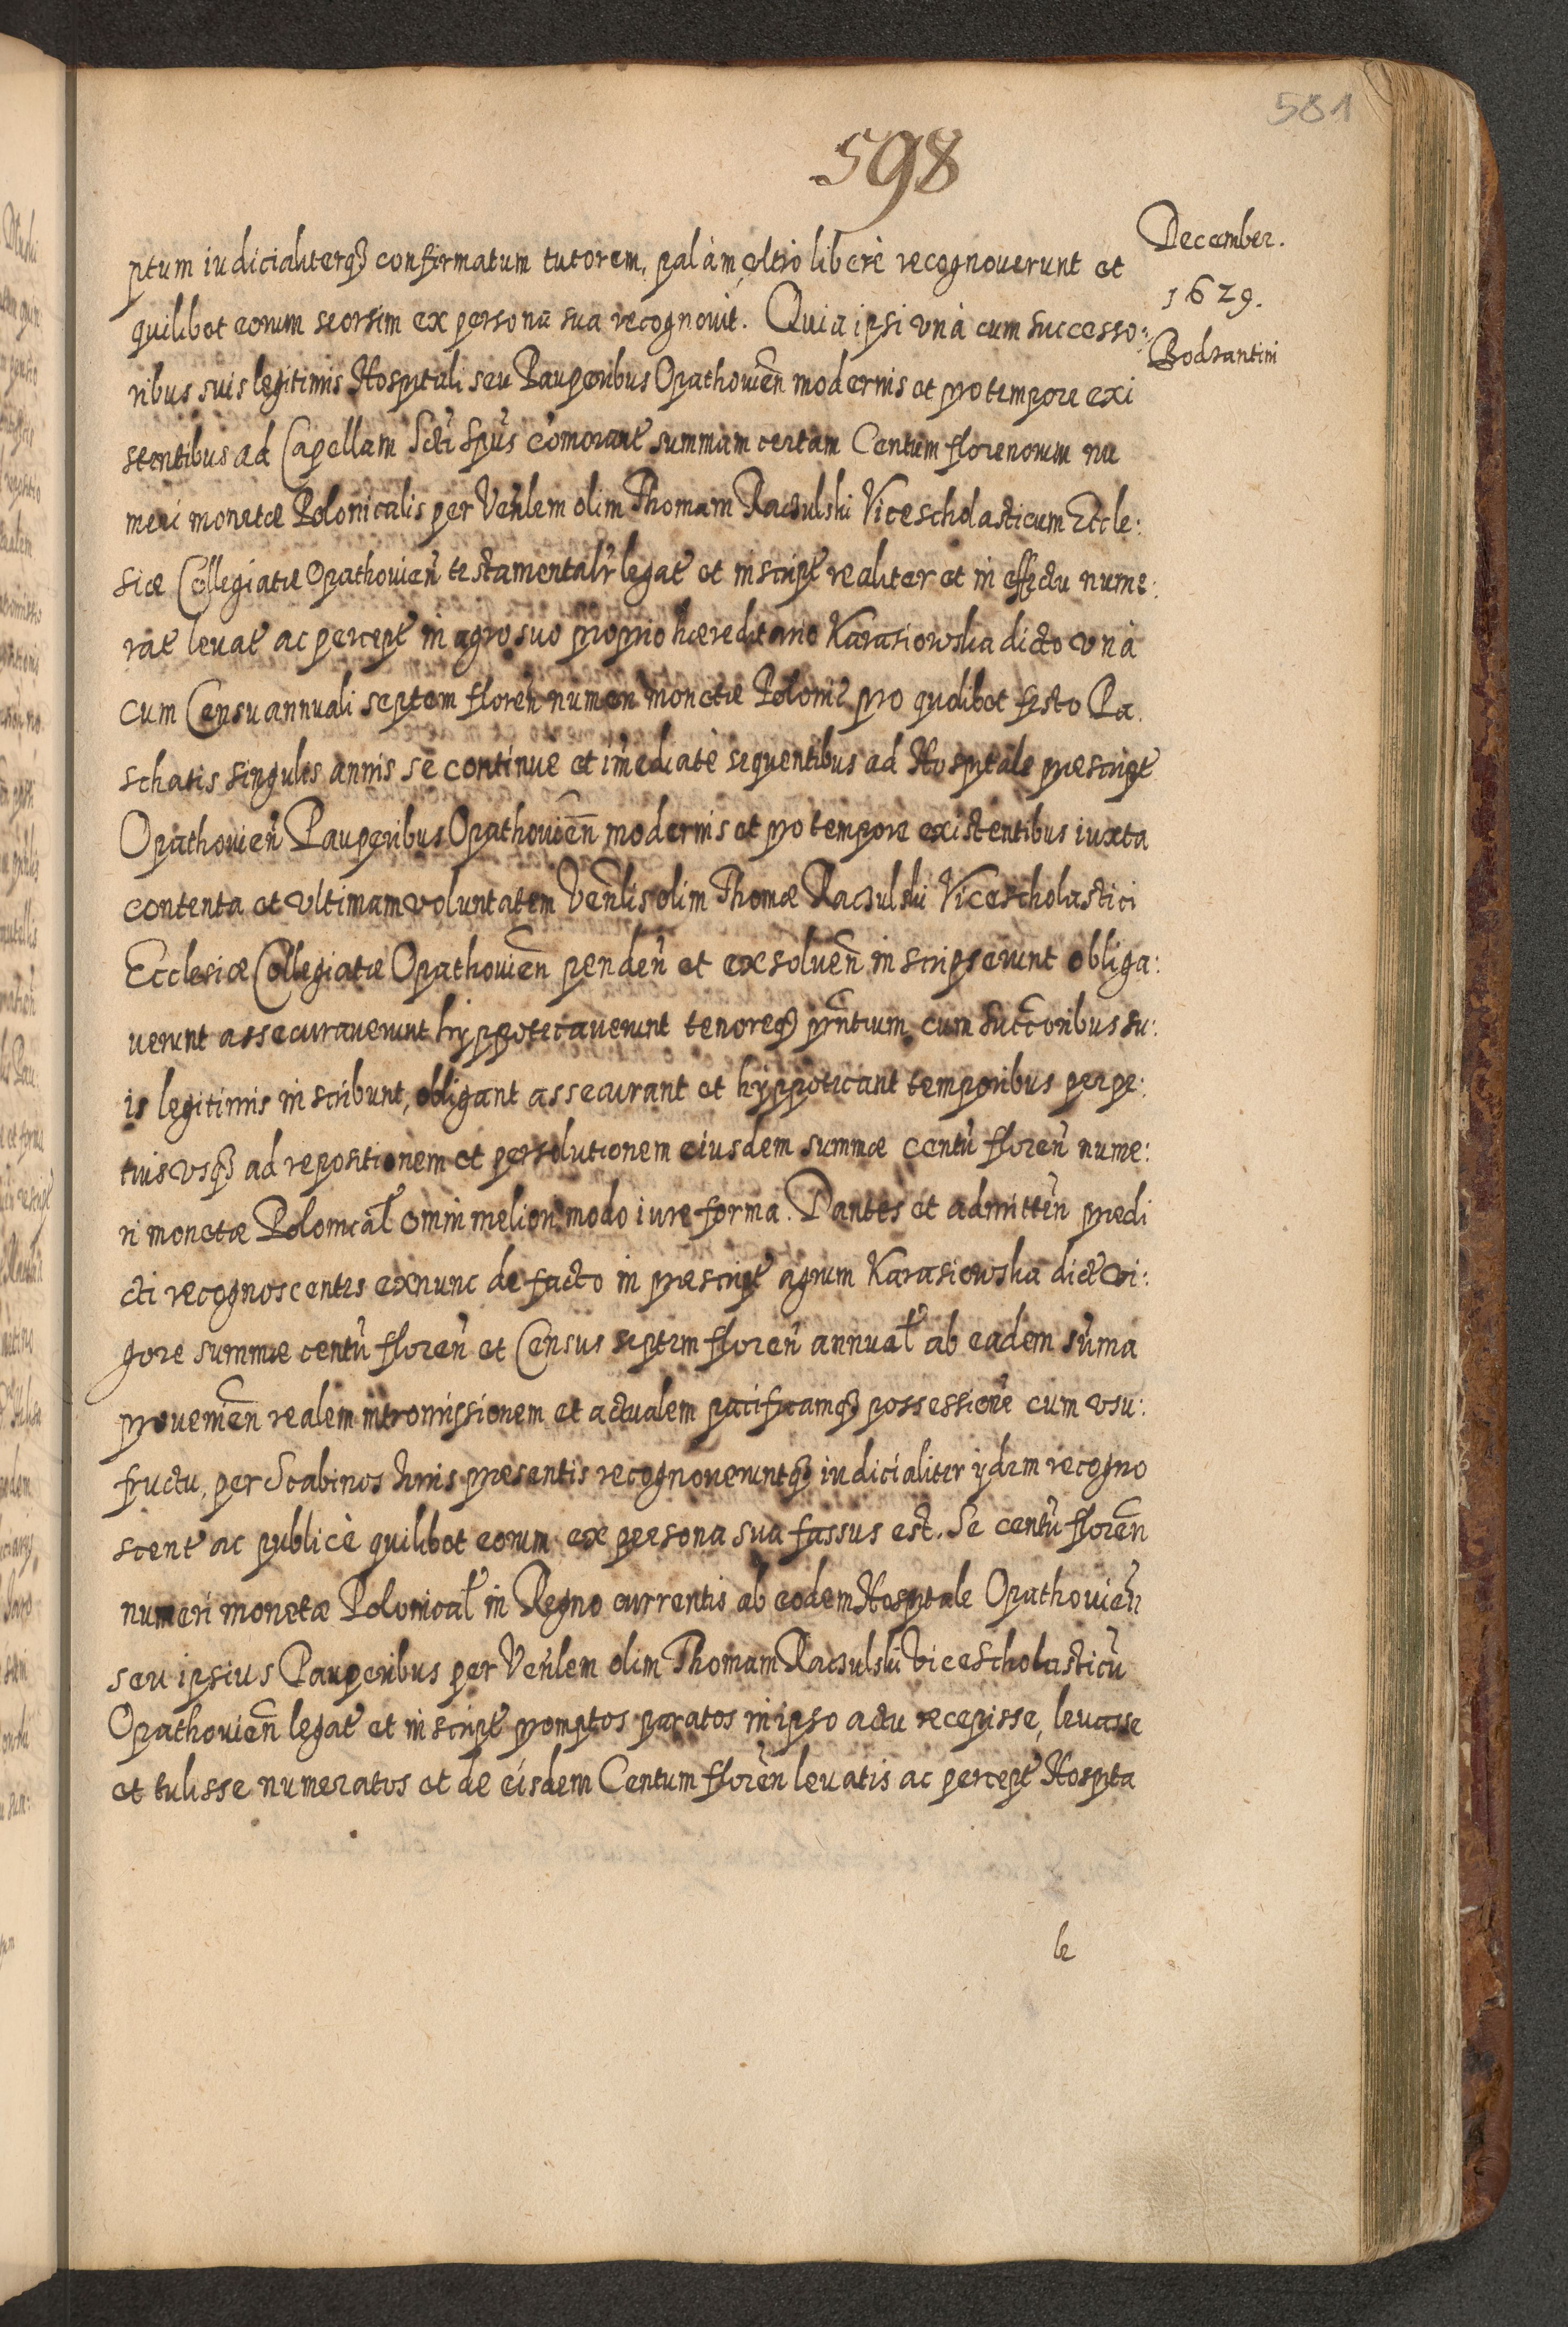 581
598
December.
1629.
Bodzantini
ptum iudicialiterq₃ confirmatum tutorem, palàm, vltrò liberè recognouerunt et
quilibet eorum seorsim ex persona sua recognouit. Quia ipsi vnà cum successo:
ribus suis legitimis Hospitali seu Pauperibus Opathouien̄ modernis et pro tempore exi
stentibus ad Capellam Scti Spūs com̄orant summam certam Centum florenorum nu
meri monetæ Polonicalis per Ven̄lem olim Thomam Raczulski Vicescholasticum Eccle:
siæ Collegiatæ Opathouien̄ testamentalr̄ legat et inscript realiter et in effectu nume:
rat leuat ac percept in agro suo proprio hæreditario Karasiowska dicto vnà
cum Censu annuali septem floren̄ numeri monetæ Polonic pro quolibet festo Pa.
schatis singulis annis se continue et im̄ediatè sequentibus ad Hospitale præscript
Opathouien̄ Pauperibus Opathouien̄ modernis et pro tempore existentibus iuxta
contenta et vltimam voluntatem Ven̄lis olim Thomæ Raczulski Vicescholastici
Ecclesiæ Collegiatæ Opathouien̄ penden̄ et exsoluen̄ inscripserunt obliga:
uerunt assecurauerunt hyppotecauerunt tenoreq₃ prn̄tium cum succ̄oribus su:
is legitimis inscribunt, obligant assecurant et hyppotecant temporibus perpe:
tuis vsq₃ ad repositionem et persolutionem eiusdem summæ centū floren̄ nume:
ri monetæ Polonical omni meliori modo iure forma. Dantes et admitten̄ prædi
cti recognoscentes exnunc de facto in præscript agrum Karasiowska dict vi:
gore summæ centū floren̄ et Census septem floren̄ annual ab eadem sum̄a
prouenien̄ realem intromissionem et actualem pacificamq₃ possessionē cum vsu:
fructu, per Scabinos huius præsentis recognoueruntq₃ iudicialiter ijdem recogno
scent ac publicè quilibet eorum ex persona sua fassus est. Se centū floren̄
numeri monetæ Polonical in Regno currentis ab eodem Hospitale Opathouien̄
seu ipsius Pauperibus per Ven̄lem olim Thomam Raczulski Vicescholasticū
Opathouien̄ legat et inscript promptos paratos in ipso actu recepisse, leuasse
et tulisse numeratos et de eisdem Centum floren̄ leuatis ac percept Hospita
le